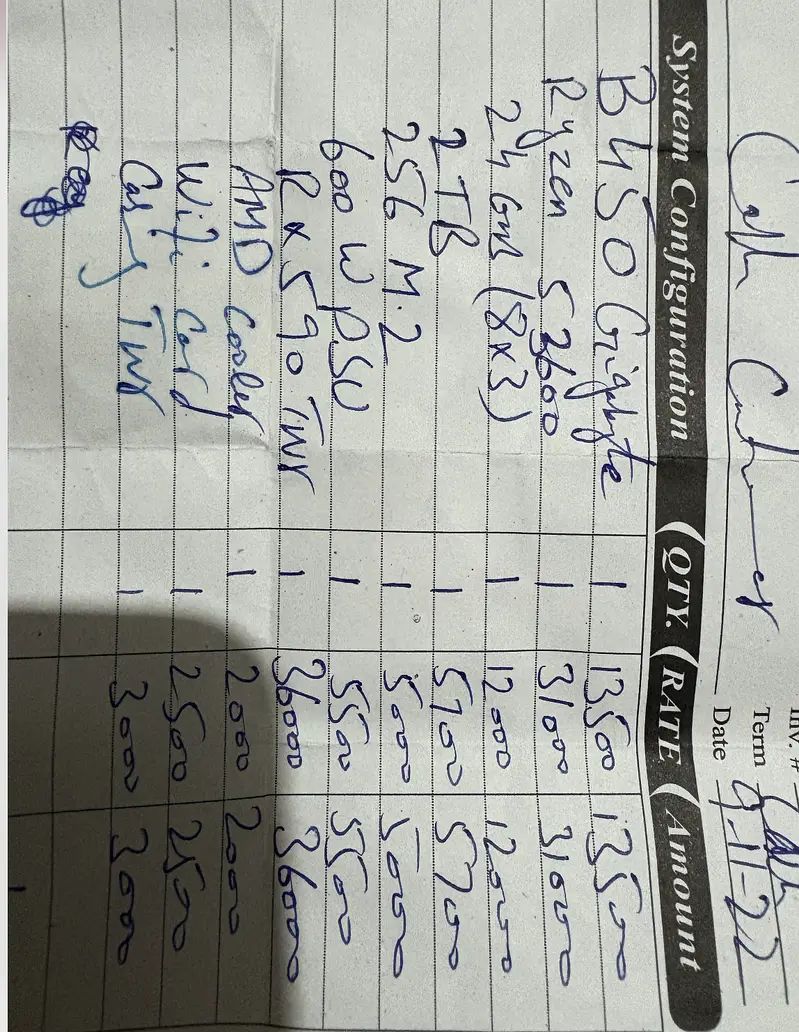 Cash Customer
Inv. #
Term Cash
Date 9-11-22
System Configuration QTY. RATE Amount
B450 Gigabyte 1 13500 13500
Ryzen 5 3600 1 31000 31000
24 GB (8x3) 1 12000 12000
2 TB 1 5700 5700
256 M.2 1 5000 5000
600 W PSU 1 5500 5500
RX 590 1 36000 36000
AMD Cooler 1 2000 2000
Wifi Card 1 2500 2500
Casing 1 3000 3000